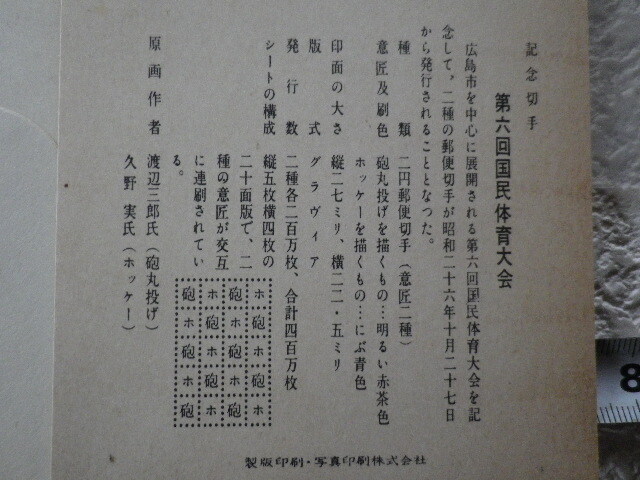 記念切手
第六回国民体育大会
広島市を中心に展開される第六回国民体育大会を記
念して，二種の郵便切手が昭和二十六年十月二十七日
から発行されることとなつた。
種類 二円郵便切手（意匠二種）
意匠及刷色 砲丸投げを描くもの…明るい赤茶色
ホッケーを描くもの…にぶ青色
印面の大さ 縦二七ミリ、横二二・五ミリ
版式 グラヴィア
発行数 二種各二百万枚、合計四百万枚
シートの構成 縦五枚横四枚の
二十面版で、二
種の意匠が交互
に連刷されてい
る。
ホ砲ホ砲ホ
砲ホ砲ホ砲
ホ砲ホ砲ホ
砲ホ砲ホ砲
原画作者 渡辺三郎氏（砲丸投げ）
久野実氏（ホッケー）
製版印刷・写真印刷株式会社
8